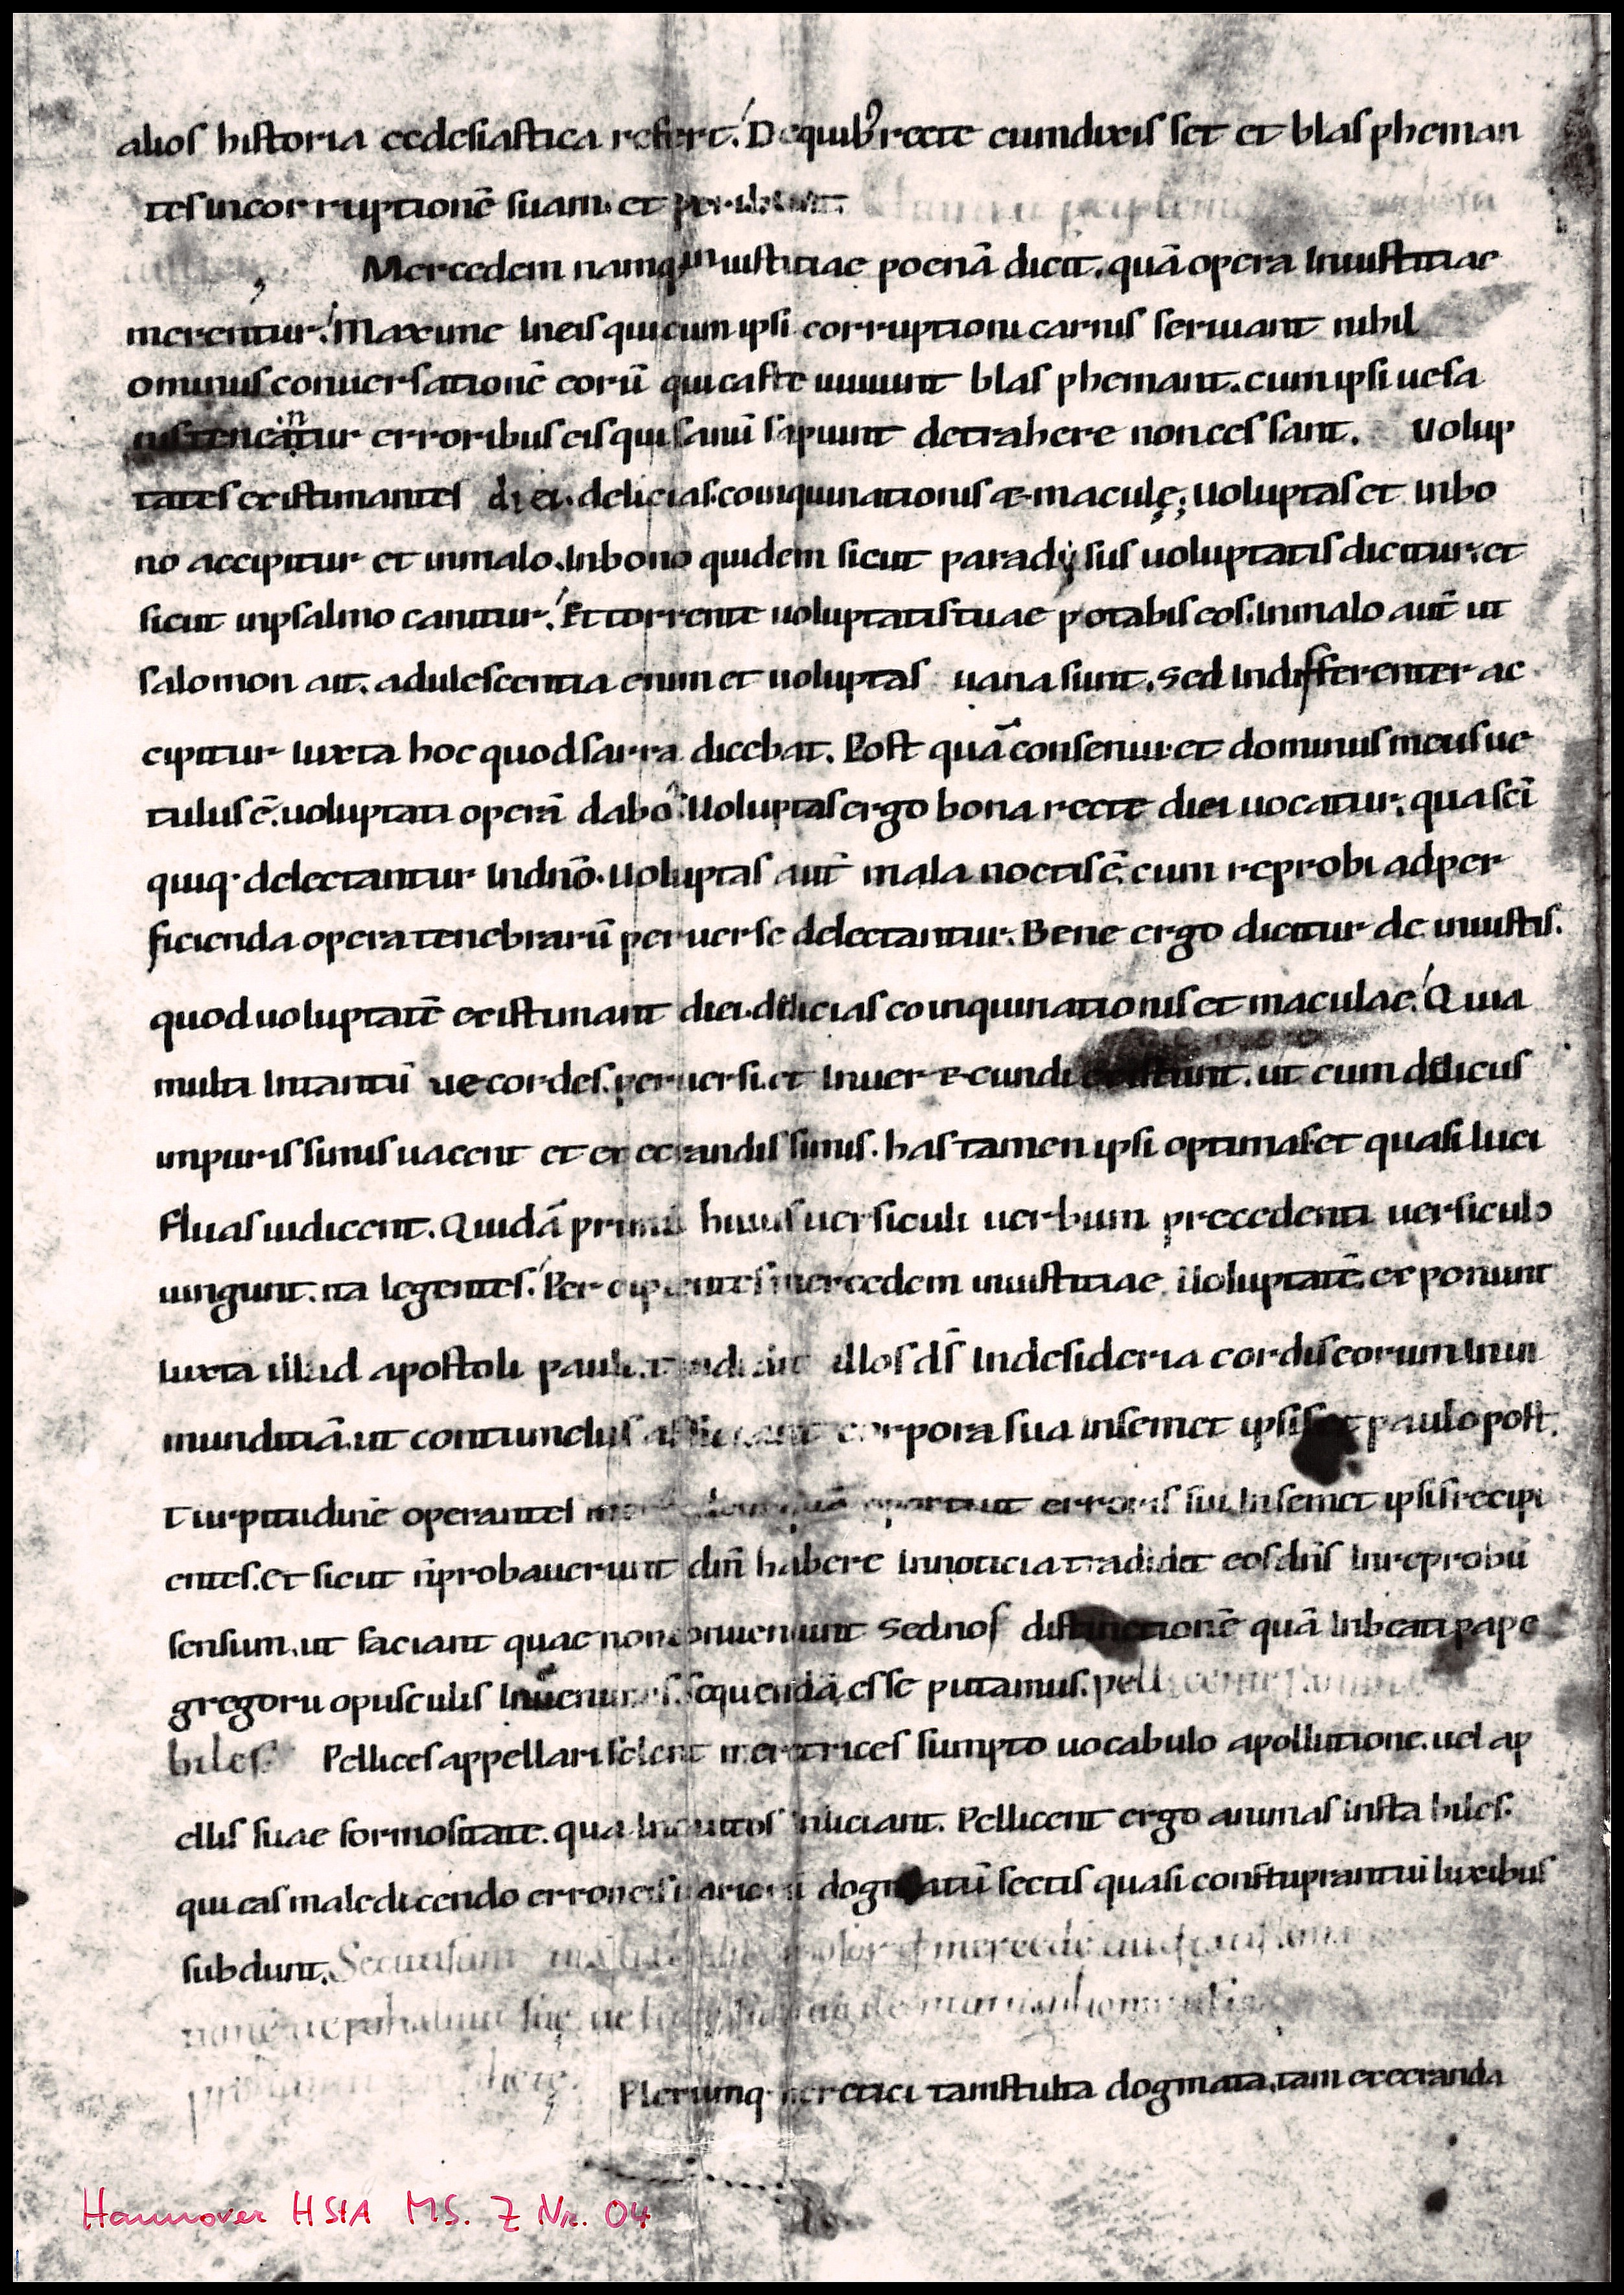 alios historia ecclesiastica refert. De quib; recte cum dixisset et blaspheman
tes in corruptionē suam. et peribunt.
Mercedem namq; iniustitiae poenā dicit. quā opera iniustitiae
merentur. Maxime in eis qui cum ipsi corruptioni carnis seruiant nihil
ominus conuersationē eorū qui caste uiuunt blasphemant. cum ipsi uesa
nis teneantur erroribus eis qui sanū sapiunt detrahere non cessant. Volup
tates existimantes diei. delicias. coinquinationis & maculę; Uoluptas et in bo
no accipitur et in malo. In bono quidem sicut paradysus uoluptatis dicitur. et
sicut in psalmo canitur. Et torrente uoluptatis tuae potabis eos. In malo aut̄ ut
salomon ait. adulescentia enim et uoluptas uana sunt. Sed indifferenter ac
cipitur iuxta hoc quod sarra dicebat. Post quā consenui. et dominus meus ue
tulus ē. uoluptati operā dabo. Uoluptas ergo bona recte diei uocatur. qua sc̄i
quiq· delectantur in dn̄o. Uoluptas aut̄ mala noctis ē. cum reprobi ad per
ficienda opera tenebrarū peruerse delectantur. Bene ergo dicitur de iniustis.
quod uoluptatē existimant diei. delicias coinquinationis et maculae. Quia
multi in tantū uecordes. peruersi. et inuer&cundi existunt. ut cum deliciis
impurissimis uacent et execrandissimis. has tamen ipsi optimas. et quasi luci
fluas iudicent. Quidā primū huius uersiculi uerbum precedenti uersiculo
iungunt. ita legentes. Percipientes mercedem iniustitiae. Uoluptatē. exponunt
iuxta illud apostoli pauli. tradidit illos d̄s in desideria cordis eorum in in
munditiā. ut contumeliis afficiant corpora sua in semet ipsis. et paulo post.
Turpitudinē operantes mercedem quā oportuit erroris sui. in semet ipsis recipi
entes. Et sicut n̄ probauerunt dm̄ habere in noticia tradidit eos dn̄s in reprobū
sensum. ut faciant quae non conueniunt Sed nos distinctionē quā in beati pape
gregorii opusculis inuenimus. sequendā esse putamus. pellicentes
biles. Pellices appellari solent meretrices sumpto uocabulo a pollutione. uel a p
ellis suae formositate. qua incautos inliciant. Pellicent ergo animas instabiles.
qui eas maledicendo erroneis uariorū dogmatū sectis quasi constuprantiū luxibus
subdunt.
Plerumq· heretici tam stulta dogmata. tam execranda
Hannover HStA MS. Z Nr. 04